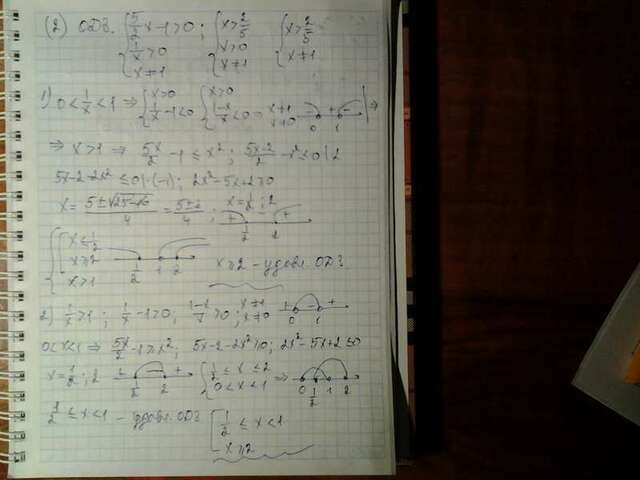 (2) ОДЗ. { 5/2 x − 1 > 0; 1/x > 0; x ≠ 1 { x > 2/5; x > 0; x ≠ 1 { x > 2/5; x ≠ 1
1) 0 < 1/x < 1 ⇒ { x > 0; 1/x − 1 < 0 { x > 0; 1−x/x < 0 x ≠ 1 x ≠ 0 − + − 0 1 ⇒
⇒ x > 1 ⇒ 5x/2 − 1 ≤ x²; 5x−2/2 − x² ≤ 0 | 2
5x − 2 − 2x² ≤ 0 | · (−1); 2x² − 5x + 2 ≥ 0
x = 5 ± √25−16 / 4 = 5 ± 3 / 4; x = 1/2; 2 + + 1/2 2
{ [ x ≤ 1/2; x ≥ 2; x > 1 1/2 1 2 x ≥ 2 – удовл. ОДЗ
2) 1/x > 1; 1/x − 1 > 0; 1−x/x > 0; x ≠ 1 x ≠ 0 0 1
0 < x < 1 ⇒ 5x/2 − 1 ≥ x²; 5x − 2 − 2x² ≥ 0; 2x² − 5x + 2 ≤ 0
x = 1/2; 2 + + 1/2 2 { 1/2 ≤ x ≤ 2; 0 < x < 1 ⇒ 0 1/2 1 2
1/2 ≤ x < 1 – удовл. ОДЗ [ 1/2 ≤ x < 1; x ≥ 2